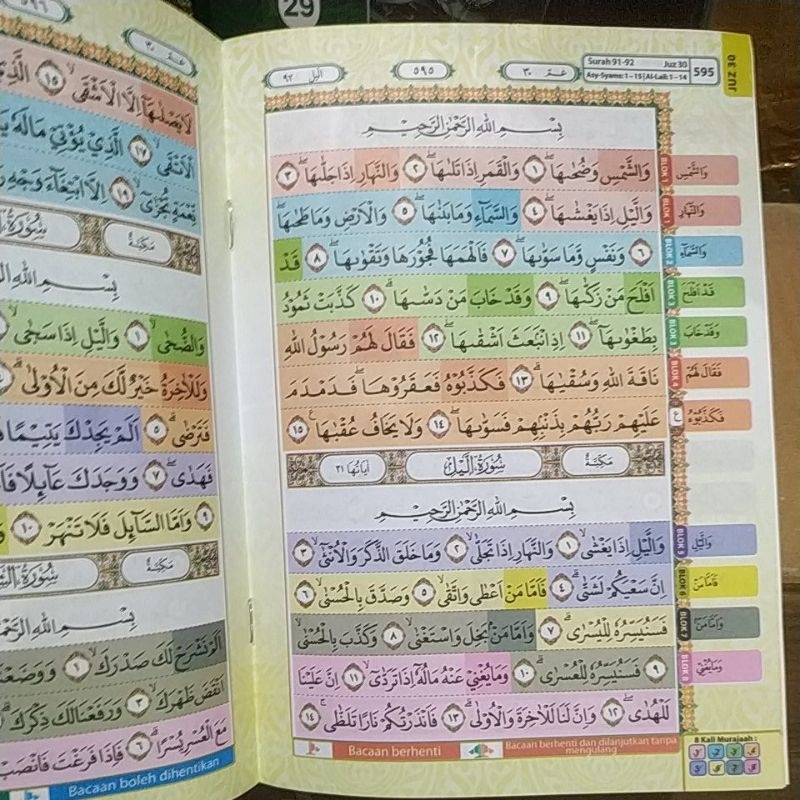 29
٥٩٦
عمّ ٣٠
لَا يَصْلٰىهَآ اِلَّا الْاَشْقَى ۙ ١٥ الَّذِيْ
الْاَتْقَى ۙ ١٧ الَّذِيْ يُؤْتِيْ مَالَهٗ
نِّعْمَةٍ تُجْزٰىٓ ۙ ١٩ اِلَّا ابْتِغَاۤءَ وَجْهِ
مَكِّيَّة
وَالضُّحٰى ۙ ١ وَالَّيْلِ اِذَا سَجٰى
وَلَلْاٰخِرَةُ خَيْرٌ لَّكَ مِنَ الْاُوْلٰى
فَتَرْضٰى ۗ ٥ اَلَمْ يَجِدْكَ يَتِيْمًا
فَهَدٰى ۖ ٧ وَوَجَدَكَ عَاۤىِٕلًا
٩ وَاَمَّا السَّاۤىِٕلَ فَلَا تَنْهَرْ ١٠
مَكِّيَّة
اَلَمْ نَشْرَحْ لَكَ صَدْرَكَ ۙ ١
اَنْقَضَ ظَهْرَكَ ۙ ٣ وَرَفَعْنَا لَكَ ذِكْرَكَ ۗ
مَعَ الْعُسْرِ يُسْرًا ۗ ٦ فَاِذَا فَرَغْتَ فَانْصَبْ
Bacaan boleh dihentikan
اليل ٩٢ ٥٩٥ عمّ ٣٠
Surah 91-92 Juz 30
Asy-Syams: 1 – 15 | Al-Lail: 1 – 14
595
JUZ 30
بِسْمِ اللّٰهِ الرَّحْمٰنِ الرَّحِيْمِ
وَالشَّمْسِ وَضُحٰىهَا ۖ ١ وَالْقَمَرِ اِذَا تَلٰىهَا ۖ ٢ وَالنَّهَارِ اِذَا جَلّٰىهَا ۖ ٣
وَالَّيْلِ اِذَا يَغْشٰىهَا ۖ ٤ وَالسَّمَاۤءِ وَمَا بَنٰىهَا ۖ ٥ وَالْاَرْضِ وَمَا طَحٰىهَا ۖ
٦ وَنَفْسٍ وَّمَا سَوّٰىهَا ۖ ٧ فَاَلْهَمَهَا فُجُوْرَهَا وَتَقْوٰىهَا ۖ ٨ قَدْ
اَفْلَحَ مَنْ زَكّٰىهَا ۖ ٩ وَقَدْ خَابَ مَنْ دَسّٰىهَا ۗ ١٠ كَذَّبَتْ ثَمُوْدُ
بِطَغْوٰىهَآ ۖ ١١ اِذِ انْۢبَعَثَ اَشْقٰىهَا ۖ ١٢ فَقَالَ لَهُمْ رَسُوْلُ اللّٰهِ
نَاقَةَ اللّٰهِ وَسُقْيٰهَا ۗ ١٣ فَكَذَّبُوْهُ فَعَقَرُوْهَا ۖ فَدَمْدَمَ
عَلَيْهِمْ رَبُّهُمْ بِذَنْۢبِهِمْ فَسَوّٰىهَا ۖ ١٤ وَلَا يَخَافُ عُقْبٰهَا ۚ ١٥
مَكِّيَّة سُوْرَةُ الَّيْلِ اٰيَاتُهَا ٢١
بِسْمِ اللّٰهِ الرَّحْمٰنِ الرَّحِيْمِ
وَالَّيْلِ اِذَا يَغْشٰى ۙ ١ وَالنَّهَارِ اِذَا تَجَلّٰى ۙ ٢ وَمَا خَلَقَ الذَّكَرَ وَالْاُنْثٰىٓ ۙ ٣
اِنَّ سَعْيَكُمْ لَشَتّٰى ۗ ٤ فَاَمَّا مَنْ اَعْطٰى وَاتَّقٰى ۙ ٥ وَصَدَّقَ بِالْحُسْنٰى ۙ ٦
فَسَنُيَسِّرُهٗ لِلْيُسْرٰى ۗ ٧ وَاَمَّا مَنْۢ بَخِلَ وَاسْتَغْنٰى ۙ ٨ وَكَذَّبَ بِالْحُسْنٰى ۙ
٩ فَسَنُيَسِّرُهٗ لِلْعُسْرٰى ۗ ١٠ وَمَا يُغْنِيْ عَنْهُ مَالُهٗٓ اِذَا تَرَدّٰى ۙ ١١ اِنَّ عَلَيْنَا
لَلْهُدٰى ۖ ١٢ وَاِنَّ لَنَا لَلْاٰخِرَةَ وَالْاُوْلٰى ۗ ١٣ فَاَنْذَرْتُكُمْ نَارًا تَلَظّٰى ۚ ١٤
BLOK 1 وَالشَّمْسِ
BLOK 1 وَالنَّهَارِ
BLOK 2 وَالسَّمَاۤءِ
BLOK 3 قَدْ اَفْلَحَ
BLOK 3 وَقَدْ خَابَ
BLOK 4 فَقَالَ لَهُمْ
ع فَكَذَّبُوْهُ
BLOK 5 وَالَّيْلِ
BLOK 6 فَاَمَّا مَنْ
BLOK 7 وَاَمَّا مَنْۢ
BLOK 8 وَمَا يُغْنِيْ
Bacaan berhenti
Bacaan berhenti dan dilanjutkan tanpa
mengulang
8 Kali Murajaah :